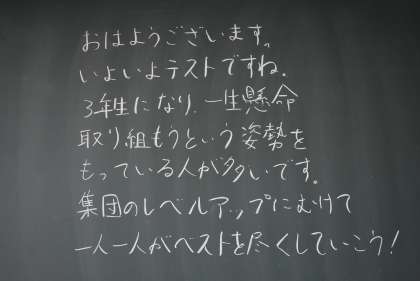 おはようございます。
いよいよテストですね.
3年生になり、一生懸命
取り組もうという姿勢を
もっている人が多いです。
集団のレベルアップにむけて
一人一人がベストを尽くしていこう!